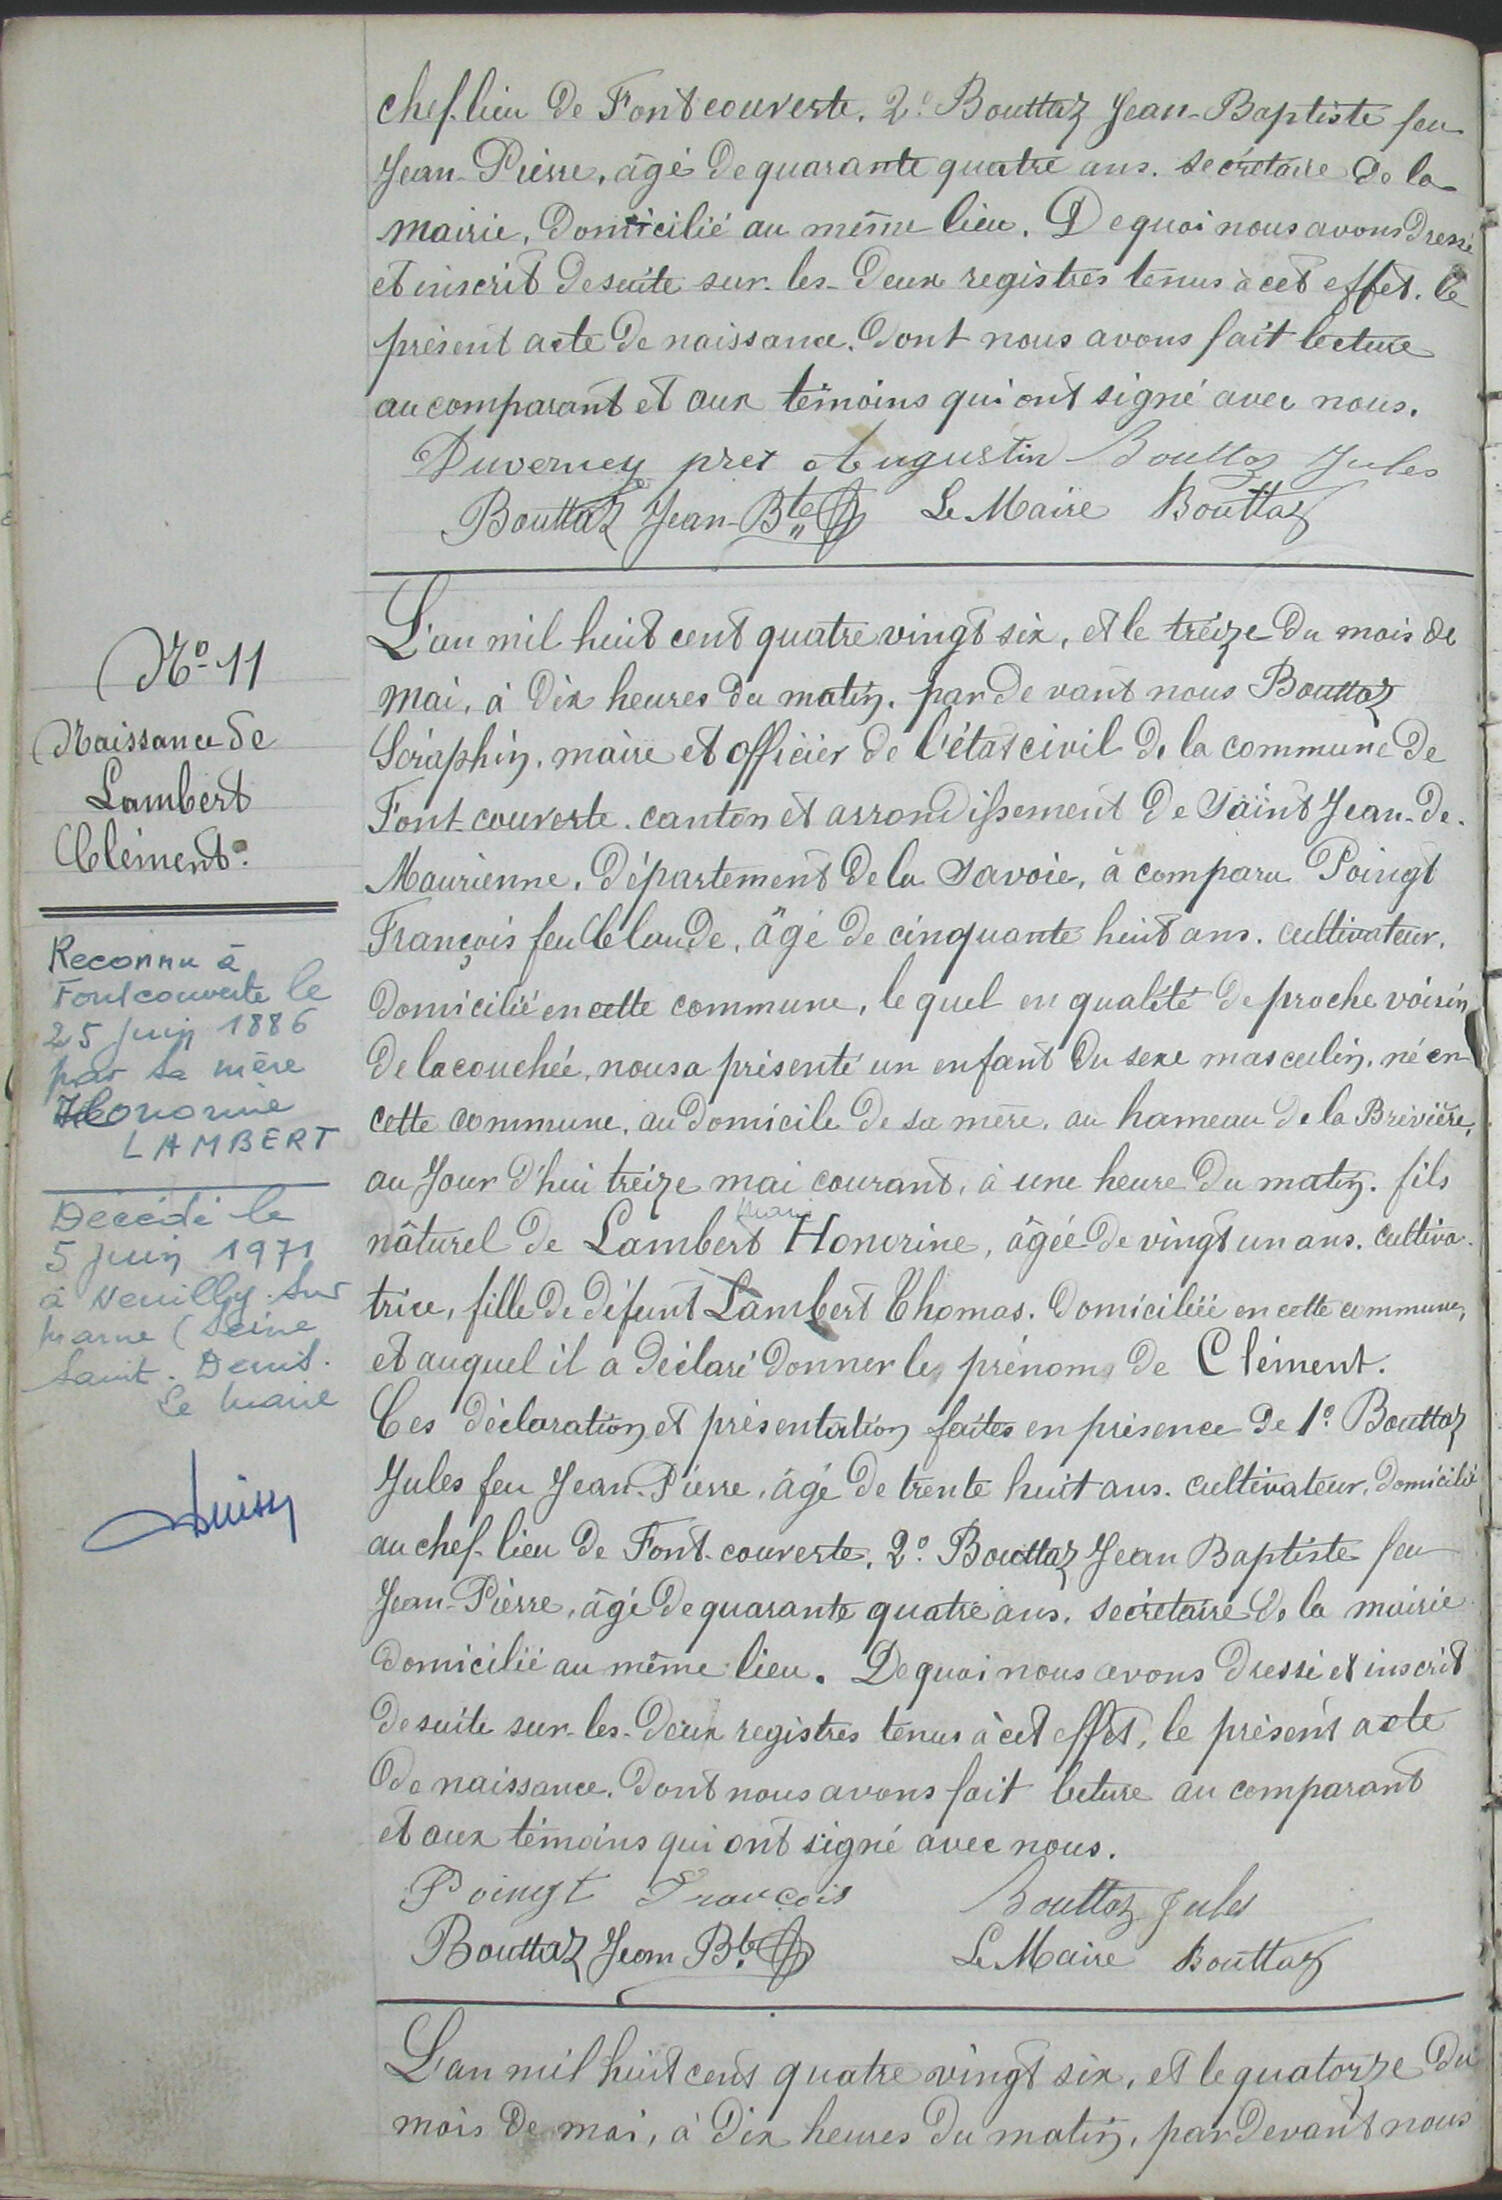 chef-lieu de Fontcouverte. 2º Bouttaz Jean-Baptiste feu
Jean-Pierre, âgé de quarante quatre ans. secrétaire de la
mairie, domicilié au même lieu. De quoi nous avons dressé
et inscrit desuite sur-les-deux registres tenus à cet effet. le
présent acte de naissance. dont nous avons fait lecture
au comparant et aux témoins qui ont signé avec nous.
Duverney pret Augustin Bouttaz Jules
Bouttaz Jean-Bte Le Maire Bouttaz
Nº 11
Naissance de
Lambert
Clément.
Reconnu à
Fontcouverte le
25 juin 1886
par sa mère
Honorine
LAMBERT
Décédé le
5 juin 1971
à Neuilly-sur
Marne (Seine
Saint-Denis.
Le Maire
L'an mil huit cent quatre vingt six, et le treize du mois de
mai, à dix heures du matin. par de vant nous Bouttaz
Séraphin, maire et officier de l'état civil de la commune de
Font-couverte. canton et arrondissement de Saint Jean-de-
Maurienne, département de la Savoie, à comparu Poingt
François feu Claude, âgé de cinquante huit ans. cultivateur,
domicilié en cette commune, le quel en qualité de proche voisin
de lacouchée, nous a présenté un enfant du sexe masculin, né en
cette commune, au domicile de sa mère, au hameau de la Brévière,
au Jour d'hui treize mai courant, à une heure du matin. fils
nâturel de Lambert Honorine, âgée de vingt un ans. cultiva-
trice, fille de défunt Lambert Thomas. domiciliée en cette commune,
et auquel il a déclaré donner les prénoms de Clément.
Ces déclaration et présentation faites en présence de 1º Bouttaz
Jules feu Jean-Pierre, âgé de trente huit ans. cultivateur, domicilié
au chef-lieu de Font-couverte. 2º Bouttaz Jean Baptiste feu
Jean-Pierre, âgé de quarante quatre ans, secrétaire de la mairie
domicilié au même lieu. De quoi nous avons dressé et inscrit
desuite sur-les-deux registres tenus à cet effet, le présent acte
de naissance. dont nous avons fait lecture au comparant
et aux témoins qui ont signé avec nous.
Poingt François Bouttaz Jules
Bouttaz Jean Bte Le Maire Bouttaz
L'an mil huit cent quatre vingt six, et le quatorze du
mois de mai, à dix heures du matin, par devant nous